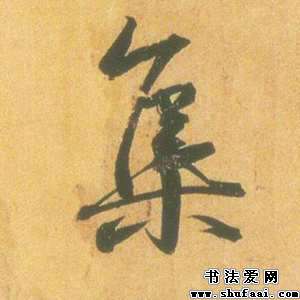 集
书法爱网
www.shufaai.com